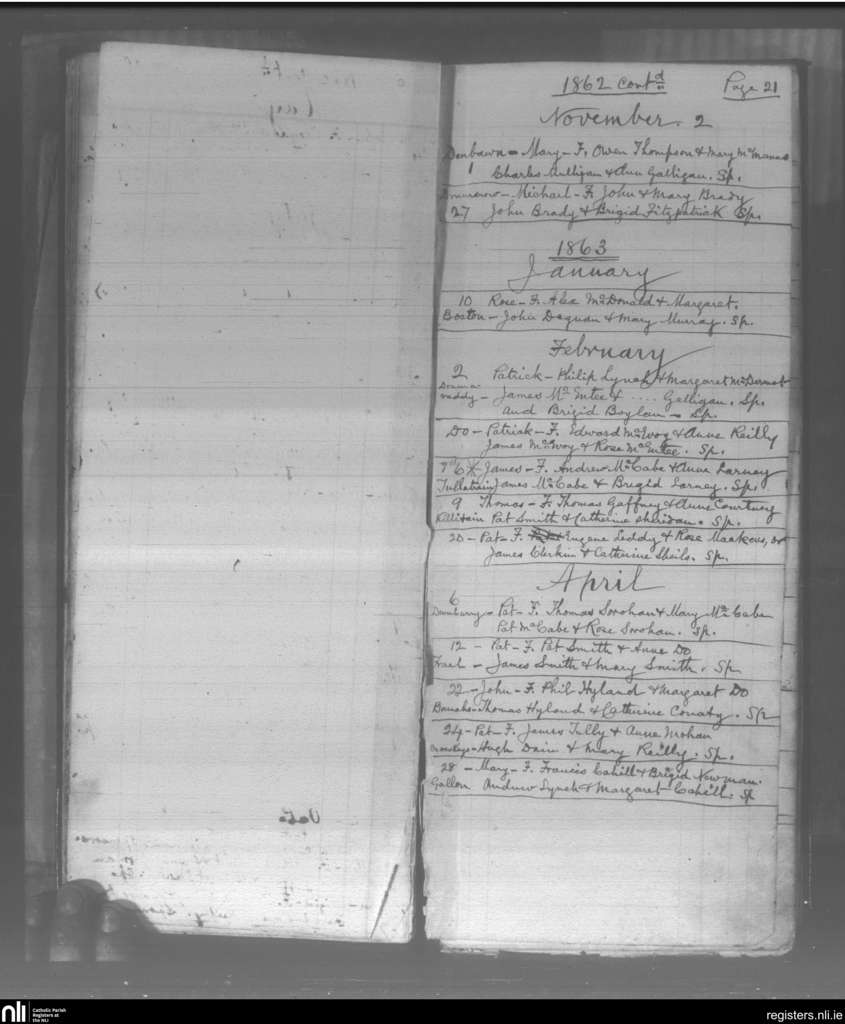 1862 Contd Page 21
November. 2
Denbawn – Mary – F. Owen Thompson & Mary McManus
1 Charles Mulligan & Ann Galligan. Sp.
Michael – F. John & Mary Brady
27 John Brady & Brigid Fitzpatrick Sp.
1863
January
10 Rose – F. Alex McDonald & Margaret.
Boston – John Degnan & Mary Murray. Sp.
February
2 Patrick – Philip Lynch & Margaret McDermot
James McEntee & .... Gelligan. Sp.
and Brigid Boylan – Sp.
Do – Patrick – F. Edward McEvoy & Anne Reilly
James McEvoy & Rose McEntee. Sp.
James – F. Andrew McCabe & Anne Larney
Tullatrain James McCabe & Brigid Larney. Sp.
9 Thomas – F. Thomas Gaffney & Anne Courtney
Pat Smith & Catherine Sheridan. Sp.
20 – Pat – F. Eugene Leddy & Rose
James Clerkin & Catherine Sheils. Sp.
April
6
Pat – F. Thomas Sorohan & Mary McCabe
Pat McCabe & Rose Sorohan. Sp.
12 – Pat – F. Pat Smith & Anne Do
James Smith & Mary Smith. Sp
22 – John – F. Phil Hyland & Margaret Do
Thomas Hyland & Catherine Conaty. Sp
24 – Pat – F. James Tully & Anne Mohan
Hugh Dain & Mary Reilly. Sp.
28 – Mary – F. Francis Cahill & Brigid Newman.
Gallon Andrew Lynch & Margaret Cahill. Sp
nli Catholic Parish
Registers at
the NLI
registers.nli.ie